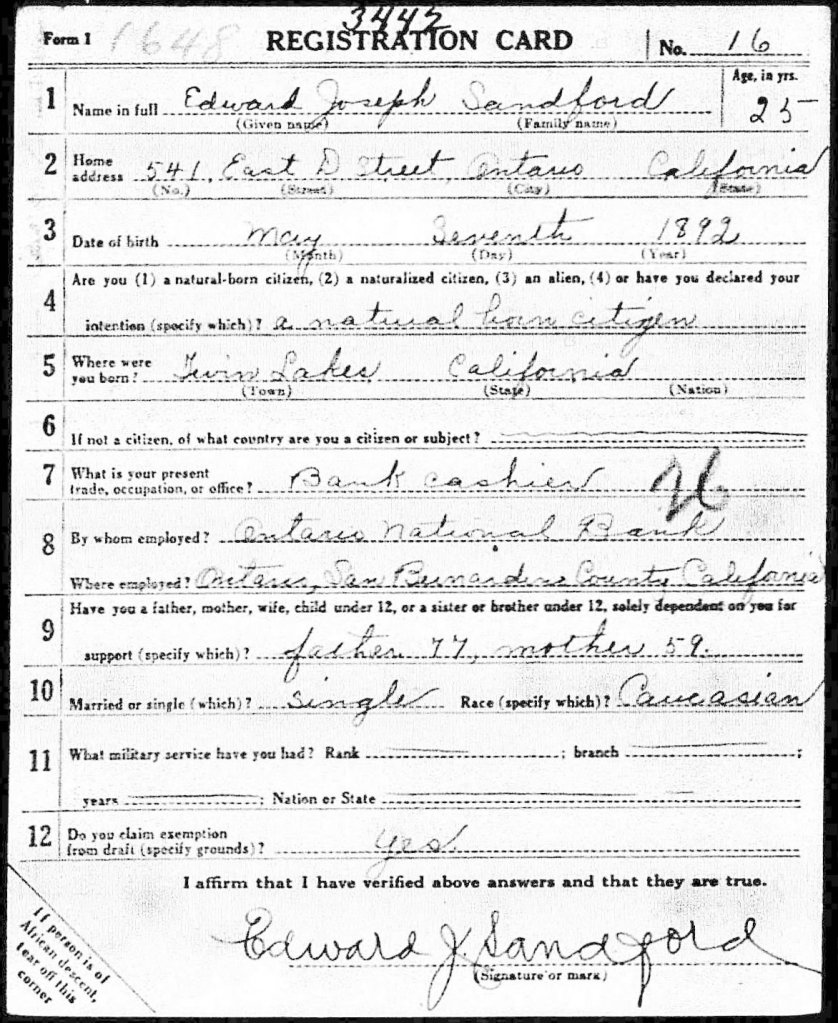 3442
Form 1 1648 REGISTRATION CARD No. 16
1 Name in full Edward Joseph Sandford Age, in yrs. 25
(Given name) (Family name)
2 Home address 541, East D Street, Ontario California
(No.) (Street) (City) (State)
3 Date of birth May Seventh 1892
(Month) (Day) (Year)
4 Are you (1) a natural-born citizen, (2) a naturalized citizen, (3) an alien, (4) or have you declared your
intention (specify which)? a natural born citizen
5 Where were you born? Twin Lakes California
(Town) (State) (Nation)
6 If not a citizen, of what country are you a citizen or subject?
7 What is your present trade, occupation, or office? Bank cashier 26
8 By whom employed? Ontario National Bank
Where employed? Ontario, San Bernardino County California
9 Have you a father, mother, wife, child under 12, or a sister or brother under 12, solely dependent on you for
support (specify which)? father 77, mother 59.
10 Married or single (which)? single Race (specify which)? Caucasian
11 What military service have you had? Rank ; branch ;
years ; Nation or State
12 Do you claim exemption from draft (specify grounds)? yes.
I affirm that I have verified above answers and that they are true.
Edward J. Sandford
(Signature or mark)
If person is of
African descent,
tear off this
corner